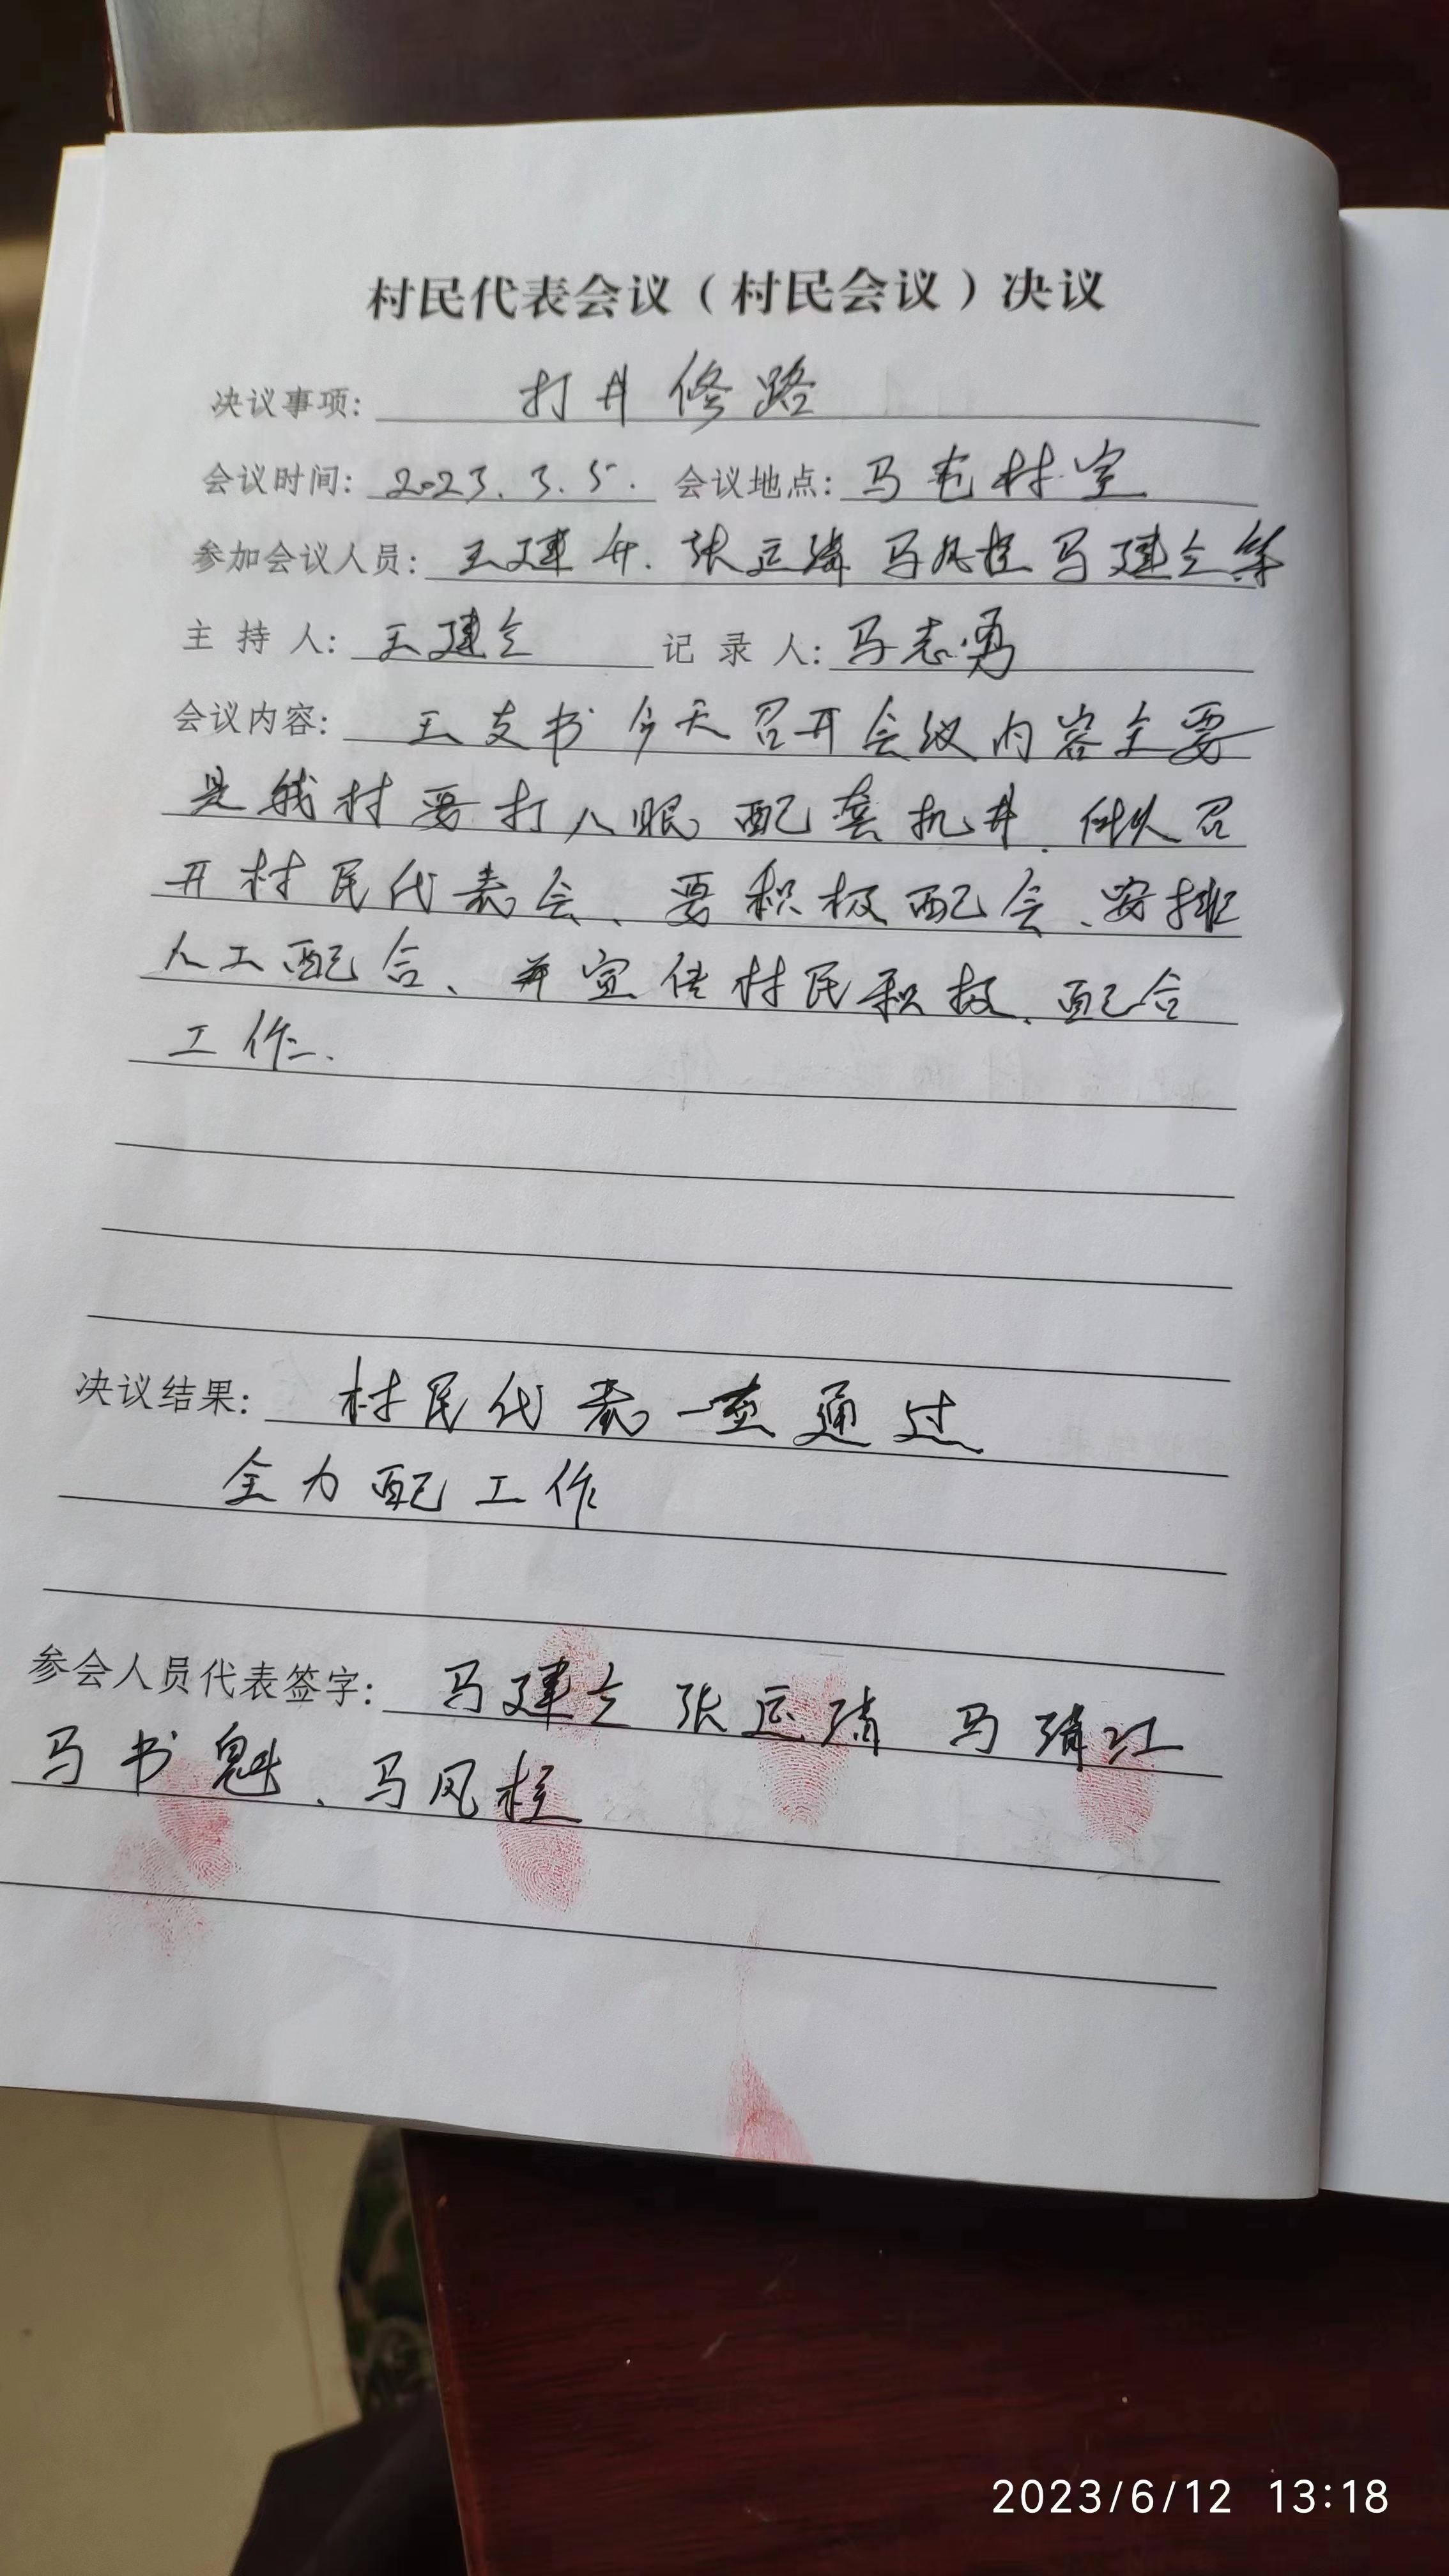 村民代表会议（村民会议）决议
决议事项: 打井修路
会议时间: 2023.3.5. 会议地点: 马屯村室
参加会议人员: 王建 张运 马风柱 马建立等
主持人: 王建立 记录人: 马志勇
会议内容: 王支书今天召开会议内容主要
是我村要打八眼配套机井. 召
开村民代表会、要积极配会、安排
人工配合、并宣传村民积极.配合
工作.
决议结果: 村民代表一致通过
全力配工作
参会人员代表签字: 马建立 张运清 马清江
马书魁、马风柱
2023/6/12 13:18